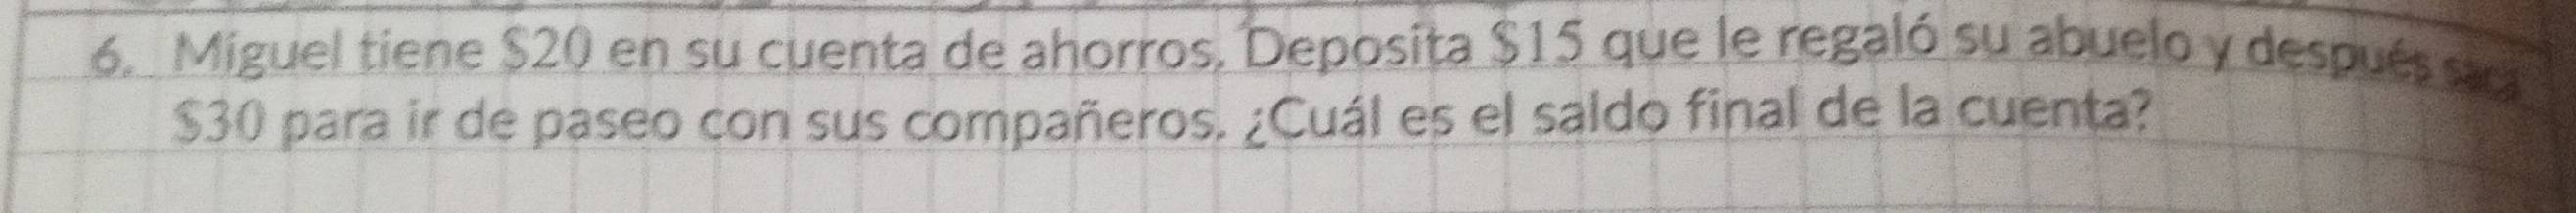 6. Miguel tiene $20 en su cuenta de ahorros. Deposita $15 que le regaló su abuelo y después saca
$30 para ir de paseo con sus compañeros. ¿Cuál es el saldo final de la cuenta?